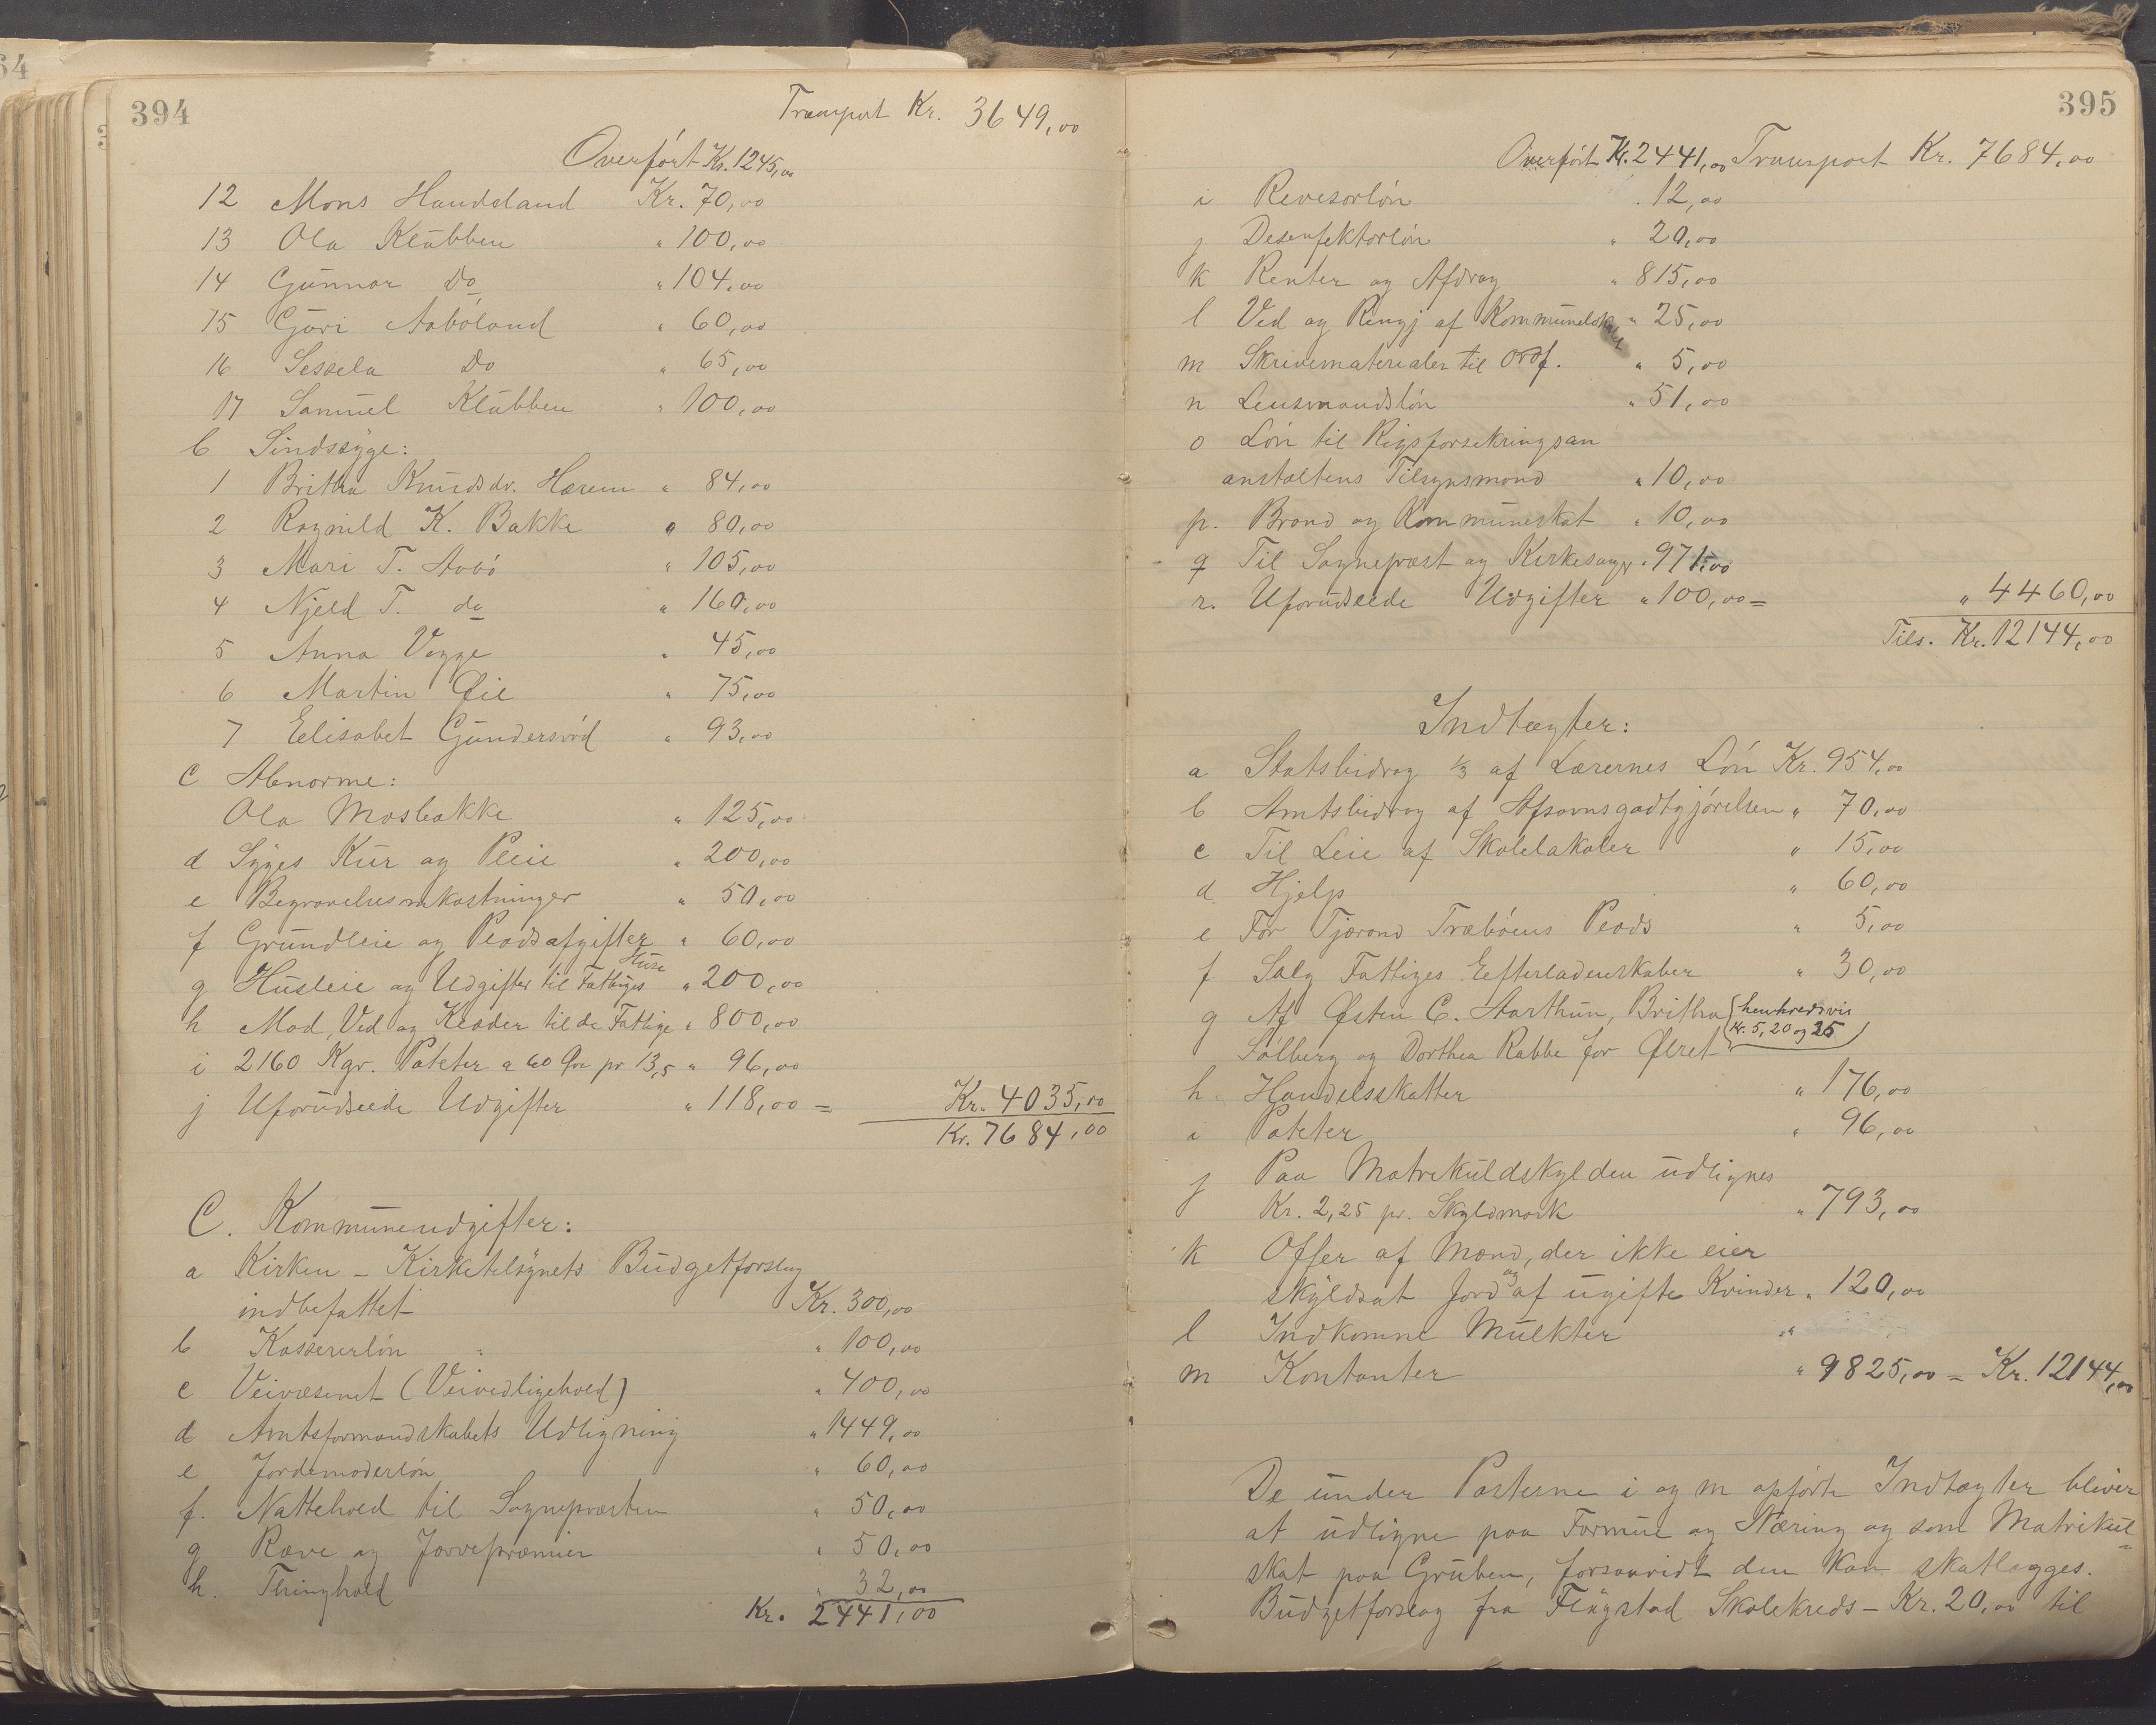 394
Transport Kr. 3649,00
Overført Kr. 1245,00
12 Mons Handeland Kr. 70,00
13 Ola Klubben " 100,00
14 Gunnar Do " 104,00
15 Guri Aabøland " 60,00
16 Sessela Do " 65,00
17 Samuel Klubben " 100,00
b Sindssyge:
1 Britha Knudsdr. Harem " 84,00
2 Ragnild K. Bakke " 80,00
3 Mari T. Aabø " 105,00
4 Njeld T. do " 160,00
5 Anna Vegge " 45,00
6 Martin Øie " 75,00
7 Elisabet Gundersrød " 93,00
c Abnorme:
Ola Mosbakke " 125,00
d Syges Kur og Pleie " 200,00
e Begravelsesomkostninger " 50,00
f Grundleie og Pladsafgifter " 60,00
g Husleie og Udgifter til Fattiges Huse " 200,00
h Mad, Ved og Klæder til de Fattige " 800,00
i 2160 Kgr. Poteter a 60 Øre pr 13,5 " 96,00
j Uforudseede Udgifter " 118,00 = Kr. 4035,00
Kr. 7684,00
C. Kommuneudgifter:
a Kirken - Kirketilsynets Budgetforslag
indbefattet Kr. 300,00
b Kassererløn " 100,00
c Veivæsenet (Veivedligehold) " 400,00
d Amtsformandskabets Udligning " 1449,00
e Jordemoderløn " 60,00
f. Nattehold til Sognepræsten " 50,00
g Ræve og Jærvepræmier " 50,00
h. Thinghold " 32,00
Kr. 2441,00
395
Overført Kr. 2441,00 Transport Kr. 7684,00
i Revesorløn " 12,00
j Desenfektorløn " 20,00
k Renter og Afdrag " 815,00
l Ved og Rengj af Kommunelokal " 25,00
m Skrivematerialer til Ordf. " 5,00
n Lensmandsløn " 51,00
o Løn til Rigsforsekringsan
anstaltens Tilsynsmand " 10,00
p. Brand og Kommuneskat " 10,00
q Til Sognepræst og Kirkesanger " 971,00
r. Uforudseede Udgifter " 100,00 = " 4460,00
Tils. Kr. 12144,00
Indtægter:
a Statsbidrag 1/3 af Lærernes Løn Kr. 954,00
b Amtsbidrag af Afsavnsgodtgjørelsen " 70,00
c Til Leie af Skolelokaler " 15,00
d Hjelp " 60,00
e For Tjærand Træbøens Plads " 5,00
f Salg Fattiges Efterladenskaber " 30,00
g Af Østen C. Aarthun, Britha henholdsvis
Kr. 5, 20 og 25
Sølberg og Dorthea Rabbe for Ølret
h Handelsskatter " 176,00
i Poteter " 96,00
j Paa Matrikuldskylden udlignes
Kr. 2,25 pr. Skyldmark " 793,00
k Offer af Mænd, der ikke eier
skyldsat Jord og af ugifte Kvinder " 120,00
l Indkomne Mulkter "
m Kontanter " 9825,00 = Kr. 12144,00
De under Posterne i og m opførte Indtægter bliver
at udligne paa Formue og Næring og som Matrikul-
skat paa Gruben, forsaavidt den kan skatlægges.
Budgetforslag fra Fløgstad Skolekreds - Kr. 20,00 til